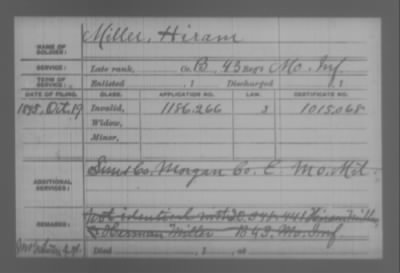 NAME OF SOLDIER: Miller, Hiram
SERVICE: Late rank, Co. B, 43 Reg't Mo. Inf.
TERM OF SERVICE: Enlisted , 1 Discharged , 1
DATE OF FILING. CLASS. APPLICATION NO. LAW. CERTIFICATE NO.
Oct. 19 Invalid, 1186.266 1015.068
Widow,
Minor,
ADDITIONAL SERVICES: Co. Morgan Co. C. Mo. Mil.
REMARKS: not identical with 441 Hiram Miller,
Herman Miller B 43. Mo. Inf
Died , 1 , at